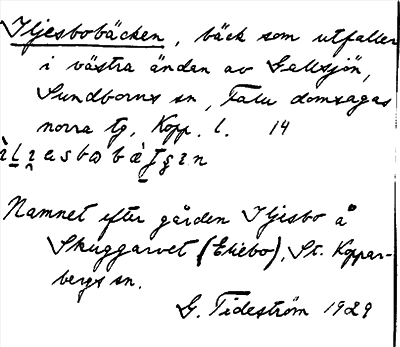 Iljesbobäcken, bäck som utfaller
i västra änden av Gallsjön,
Sundborns sn, Falu domsagas
norra tg, Kopp. l. 14
Namnet efter gården Iljesbo å
Skuggarvet (Eliebo), St. Koppar-
bergs sn.
G. Tideström 1929